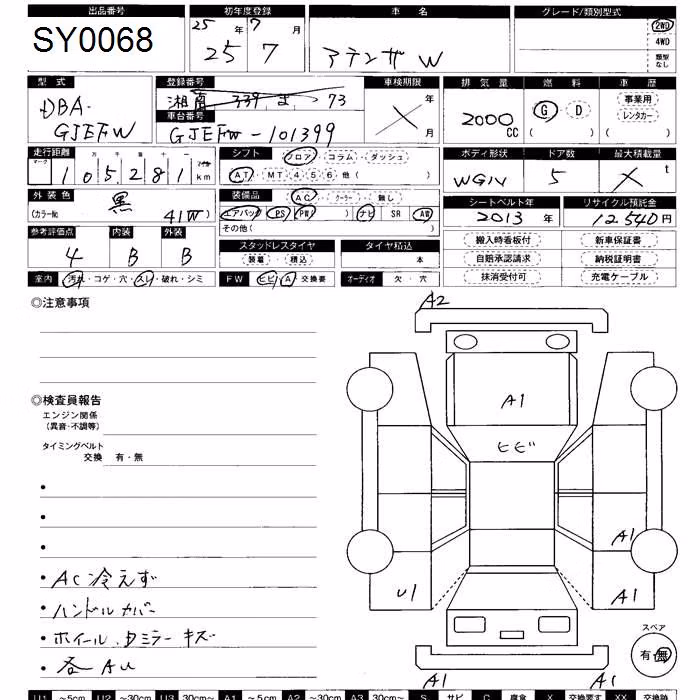 出品番号 初年度登録 車名 グレード/類別型式
SY0068 25年 7月 25 7 アテンザ W 2WD 4WD 類型なし
型式 登録番号 車検期限 排気量 燃料 車歴
DBA- GJEFW 湘南 339 ま 73 年 月 2000 CC G・D ( ) 事業用 レンタカー ( )
車台番号
GJEFW-101399
走行距離 シフト ボディ形状 ドア数 最大積載量
マーク 十 万 千 百 十 一 マイル km 105281 フロア・コラム・ダッシュ
AT・MT 4 5 6 他( ) WGN 5 t
外装色 装備品 シートベルト年 リサイクル預託金
黒 AC・クーラー・無し 2013年 12540円
(カラーNo 41W) エアバック PS PW ナビ SR AW
その他( ) 搬入時看板付 新車保証書
参考評価点 内装 外装 スタッドレスタイヤ タイヤ積込 自賠承認請求 納税証明書
4 B B 装着・積込 本 抹消受付可 充電ケーブル
室内 汚れ・コゲ・穴・スレ・破れ・シミ FW ヒビ・A・交換要 オーディオ 欠・穴
◎注意事項 A2
A1
ヒビ
◎検査員報告
エンジン関係
(異音・不調等)
タイミングベルト
交換 有・無
A1
・AC冷えず U1 A1
・ハンドルカバー
・ホイール、Dミラーキズ スペア
・各AU 有・無
A1
U1 ~5cm U2 ~30cm U3 30cm~ A1 ~5cm A2 ~30cm A3 30cm~ S サビ C 腐食 X 交換要す XX 交換跡